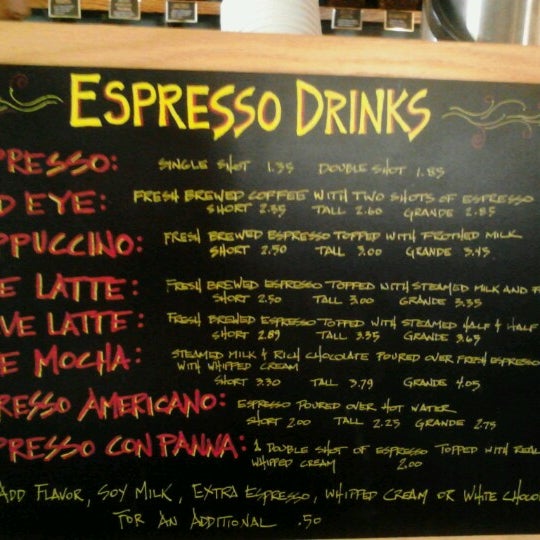 ESPRESSO DRINKS
PRESSO: SINGLE SHOT 1.35 DOUBLE SHOT 1.85
D EYE: FRESH BREWED COFFEE WITH TWO SHOTS OF ESPRESSO
SHORT 2.35 TALL 2.60 GRANDE 2.85
PPUCCINO: FRESH BREWED ESPRESSO TOPPED WITH FROTHED MILK
SHORT 2.50 TALL 3.00 GRANDE 3.45
E LATTE: FRESH BREWED ESPRESSO TOPPED WITH STEAMED MILK AND F
SHORT 2.50 TALL 3.00 GRANDE 3.35
VE LATTE: FRESH BREWED ESPRESSO TOPPED WITH STEAMED HALF & HALF
SHORT 2.89 TALL 3.35 GRANDE 3.65
E MOCHA: STEAMED MILK & RICH CHOCOLATE POURED OVER FRESH ESPRESSO
WITH WHIPPED CREAM
SHORT 3.30 TALL 3.79 GRANDE 4.05
RESSO AMERICANO: ESPRESSO POURED OVER HOT WATER
SHORT 2.00 TALL 2.25 GRANDE 2.75
PRESSO CON PANNA: 1 DOUBLE SHOT OF ESPRESSO TOPPED WITH REAL
WHIPPED CREAM 2.00
ADD FLAVOR, SOY MILK, EXTRA ESPRESSO, WHIPPED CREAM OR WHITE CHOCO
FOR AN ADDITIONAL .50